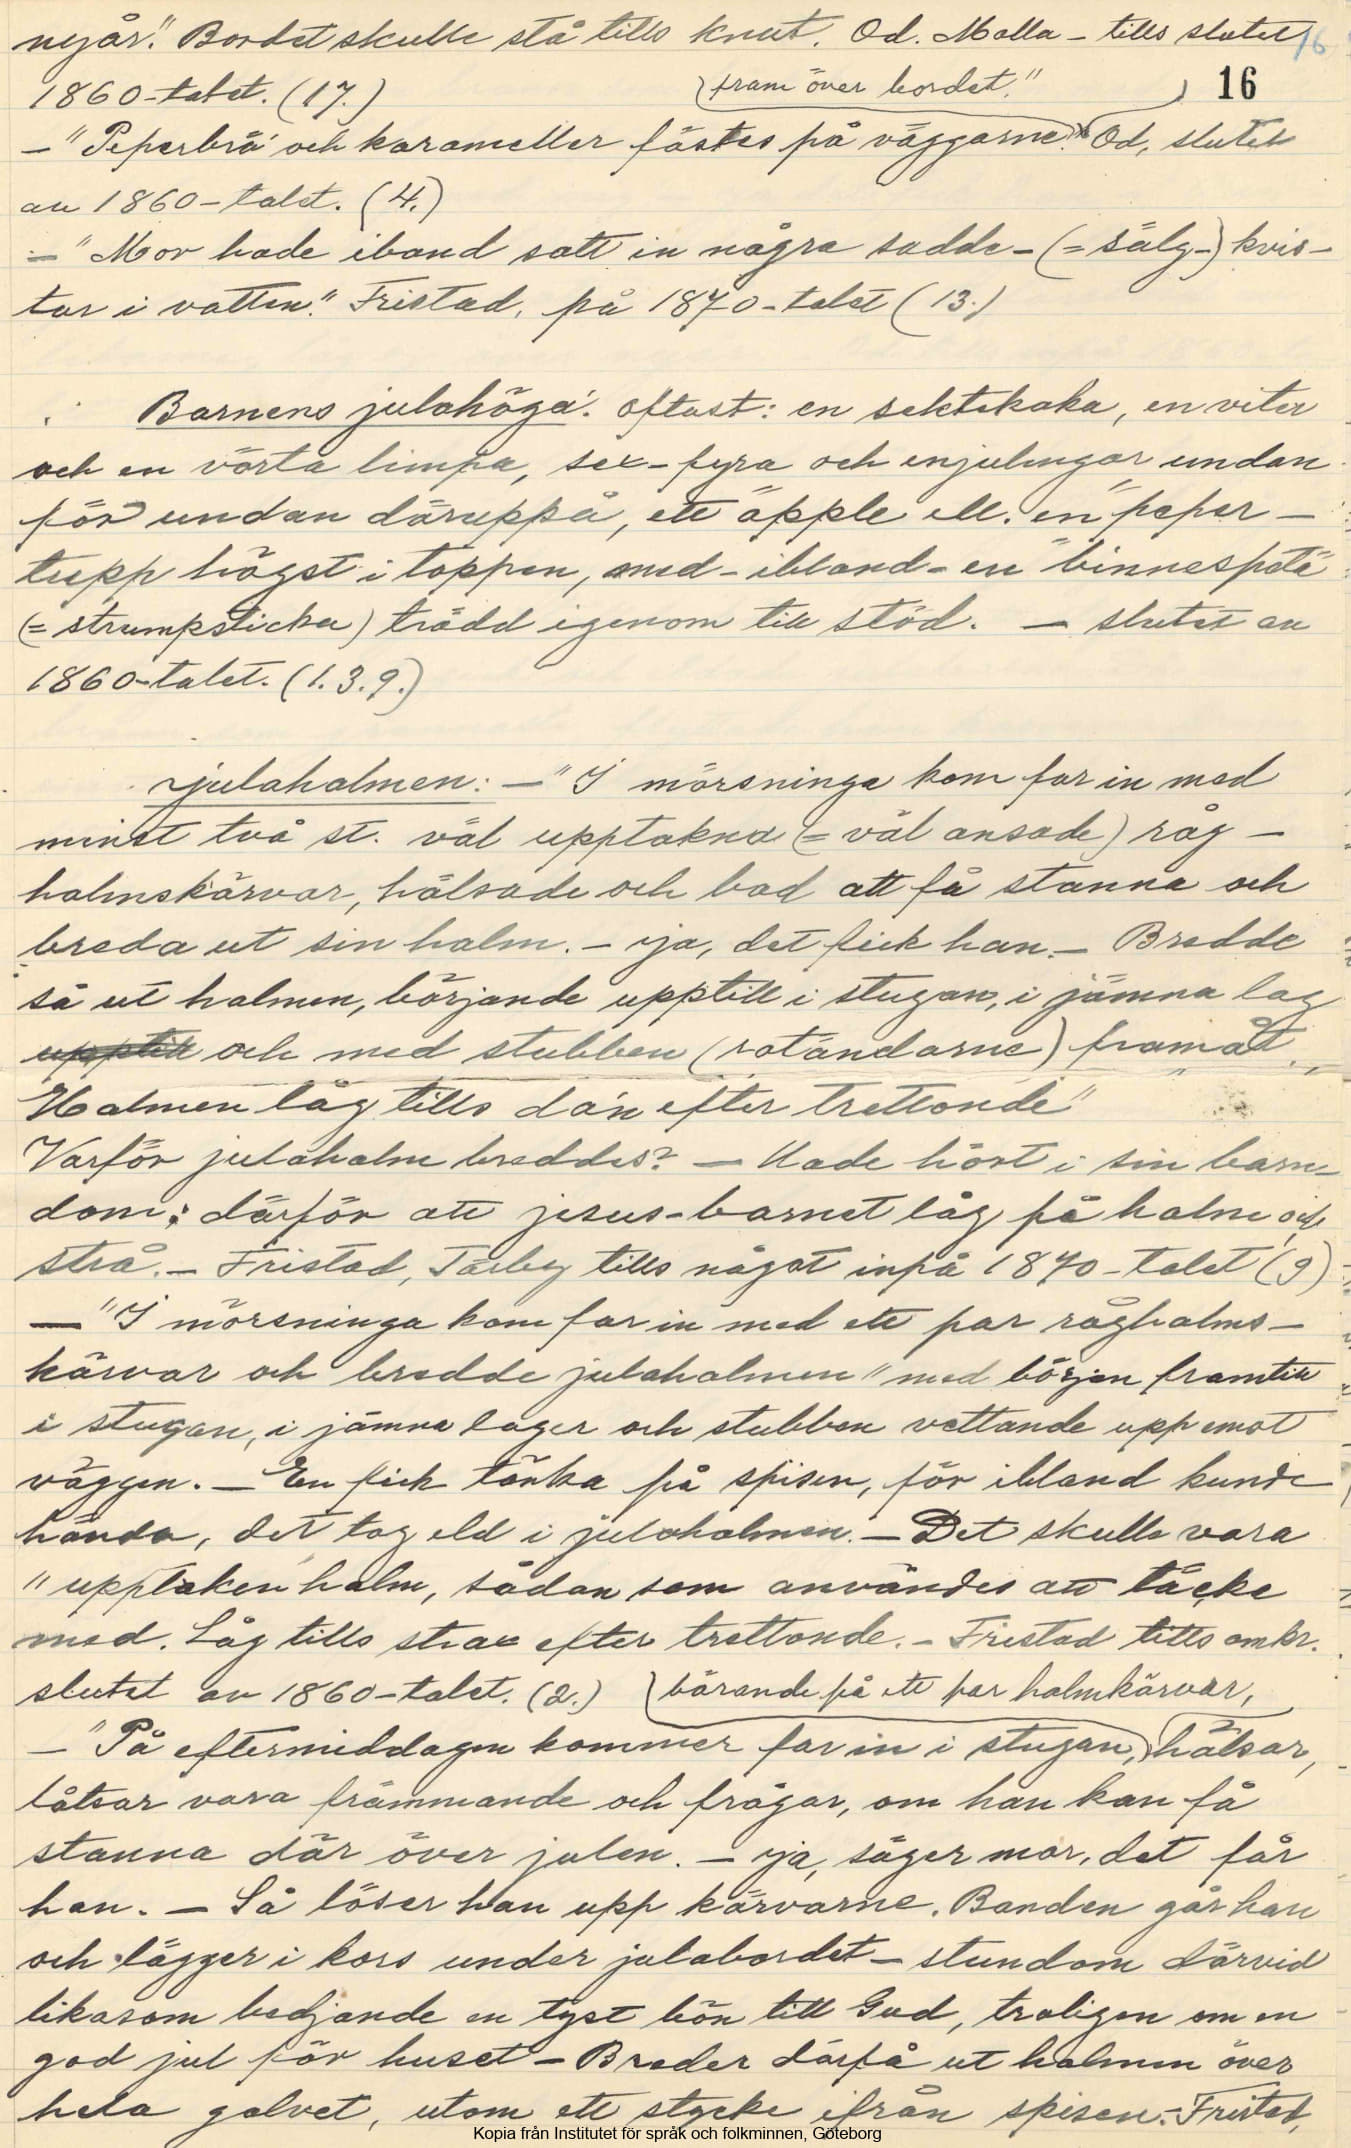 nyår." Bordet skulle stå tills knut. Od. Molla – tills slutet 16
1860-talet. (17.) fram över bordet." 16
– "Peperbrö" och karameller fästes på väggarne." Od, slutet
av 1860-talet. (4.)
– "Mor hade iband satt in några sadda- (= sälg-) kvis-
tar i vatten." Fristad, på 1870-talet (13.)
Barnens julahöga: oftast: en siktekaka, en viter
och en vörta limpa, sex-fyra och enjulungar undan
för undan däruppå, ett äpple ell. en "peper-
tupp högst i toppen, med – ibland – en "binnespéta
(= strumpsticka) trädd igenom till stöd. – slutet av
1860-talet. (1.3.9.)
julahalmen: – "I mörsninga kom far in med
minst två st. väl upptakna (= väl ansade) råg-
halmskärvar, hälsade och bad att få stanna och
breda ut sin halm. – ja, det fick han. – Bredde
så ut halmen, börjande upptill i stugan, i jämna lag
upptill och med stubben (rotändarne) framåt.
Halmen låg tills da'n efter trettonde"
Varför julahalm breddes? – Hade hört i sin barn-
dom: därför att jesus-barnet låg på halm och
strå. – Fristad, Tärby tills något inpå 1870-talet (9)
– "I mörsninga kom far in med ett par råghalms-
kärvar och bredde julahalmen" med början framtill
i stugan, i jämna lager och stubben vettande upp emot
väggen. – En fick tänka på spisen, för ibland kunde
hända, det tog eld i julahalmen. – Det skulle vara
"upptaken halm, sådan som användes att täcke
med. Låg tills strax efter trettonde. – Fristad tills omkr.
slutet av 1860-talet. (2.) bärande på ett par halmkärvar,
– "På eftermiddagen kommer far in i stugan, hälsar,
låtsar vara främmande och frågar, om han kan få
stanna där över julen. – ja, säger mor, det får
han. – Så löser han upp kärvarne. Banden går han
och lägger i kors under julabordet – stundom därvid
likasom bedjande en tyst bön till Gud, troligen om en
god jul för huset – Breder därpå ut halmen över
hela golvet, utom ett stycke ifrån spisen. – Fristad,
Kopia från Institutet för språk och folkminnen, Göteborg